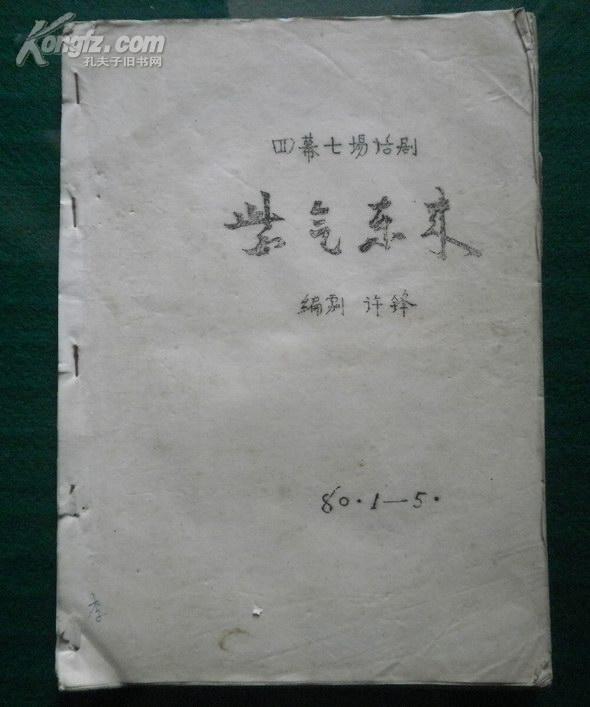 Kongfz.com
孔夫子旧书网
四幕七場话剧
紫气东来
编剧 许锋
80.1—5.
李